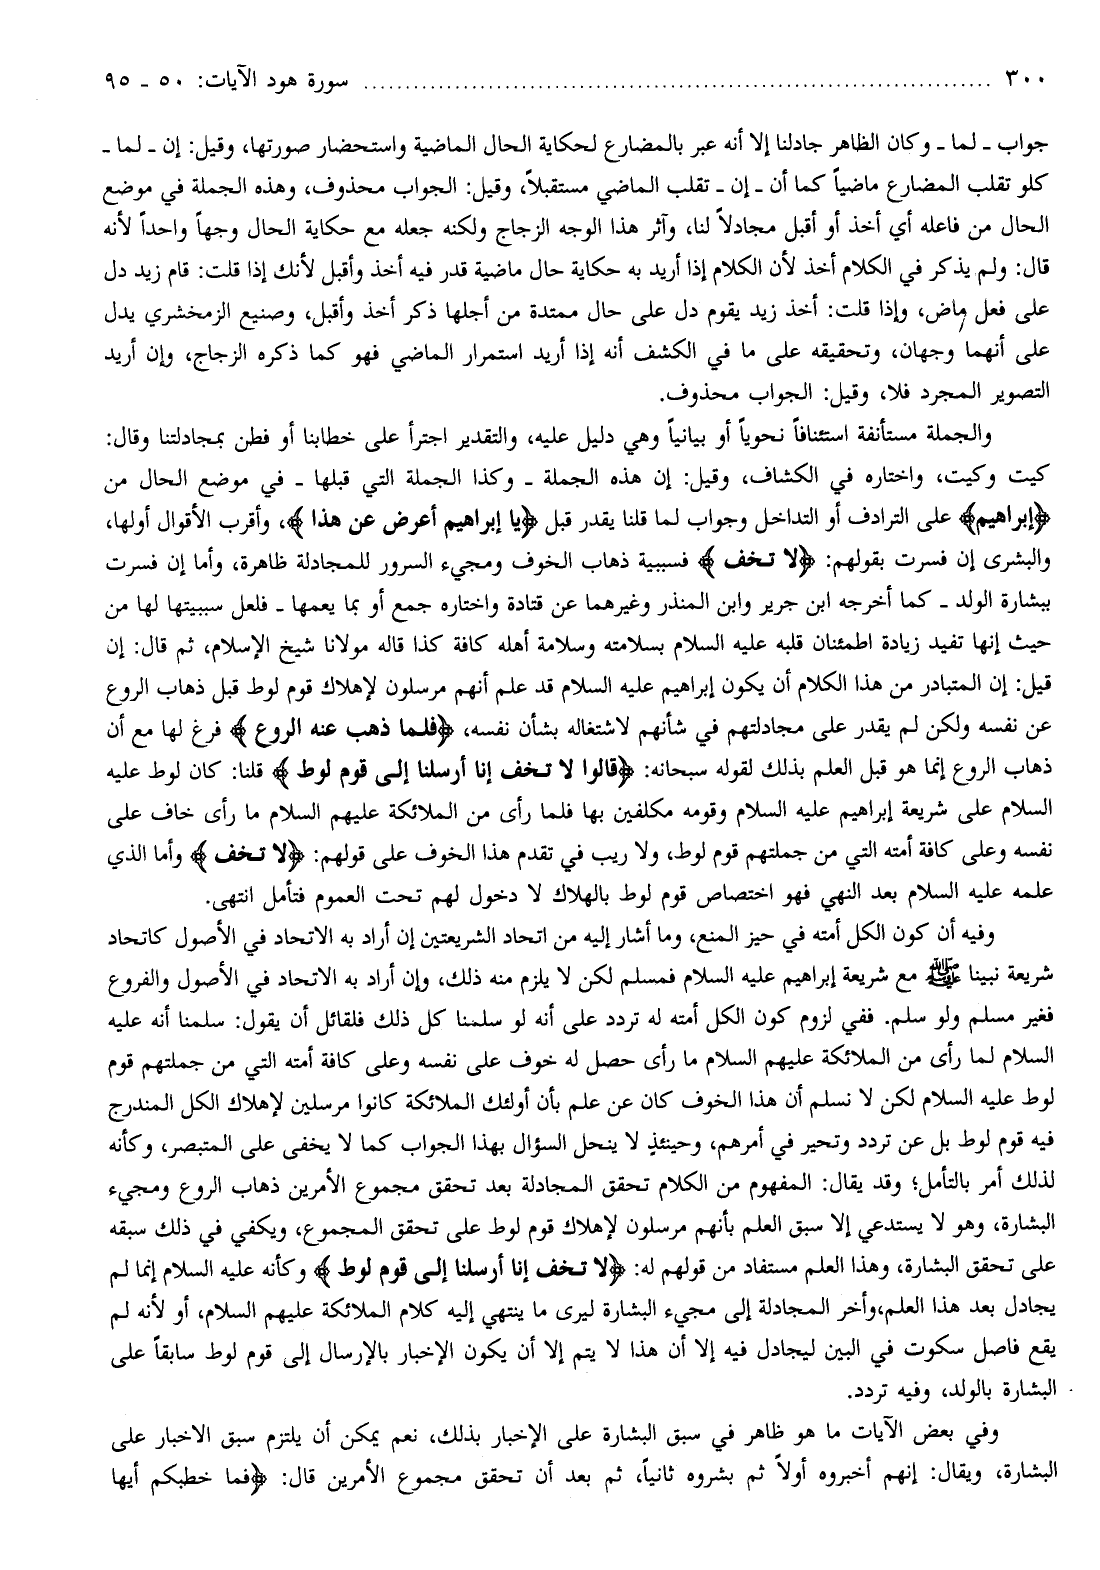 ٣٠٠ ........................................................................ سورة هود الآيات: ٥٠ ـ ٩٥
جواب ـ لما ـ وكان الظاهر جادلنا إلا أنه عبر بالمضارع لحكاية الحال الماضية واستحضار صورتها، وقيل: إن ـ لما ـ
كلو تقلب المضارع ماضياً كما أن ـ إن ـ تقلب الماضي مستقبلاً، وقيل: الجواب محذوف، وهذه الجملة في موضع
الحال من فاعله أي أخذ أو أقبل مجادلاً لنا، وآثر هذا الوجه الزجاج ولكنه جعله مع حكاية الحال وجهاً واحداً لأنه
قال: ولم يذكر في الكلام أخذ لأن الكلام إذا أريد به حكاية حال ماضية قدر فيه أخذ وأقبل لأنك إذا قلت: قام زيد دل
على فعل ماض، وإذا قلت: أخذ زيد يقوم دل على حال ممتدة من أجلها ذكر أخذ وأقبل، وصنيع الزمخشري يدل
على أنهما وجهان، وتحقيقه على ما في الكشف أنه إذا أريد استمرار الماضي فهو كما ذكره الزجاج، وإن أريد
التصوير المجرد فلا، وقيل: الجواب محذوف.
والجملة مستأنفة استئنافاً نحوياً أو بيانياً وهي دليل عليه، والتقدير اجترأ على خطابنا أو فطن بمجادلتنا وقال:
كيت وكيت، واختاره في الكشاف، وقيل: إن هذه الجملة ـ وكذا الجملة التي قبلها ـ في موضع الحال من
﴿إبراهيم﴾ على الترادف أو التداخل وجواب لما قلنا يقدر قبل ﴿يا إبراهيم أعرض عن هذا﴾، وأقرب الأقوال أولها،
والبشرى إن فسرت بقولهم: ﴿لا تخف﴾ فسببية ذهاب الخوف ومجيء السرور للمجادلة ظاهرة، وأما إن فسرت
ببشارة الولد ـ كما أخرجه ابن جرير وابن المنذر وغيرهما عن قتادة واختاره جمع أو بما يعمها ـ فلعل سببيتها لها من
حيث إنها تفيد زيادة اطمئنان قلبه عليه السلام بسلامته وسلامة أهله كافة كذا قاله مولانا شيخ الإسلام، ثم قال: إن
قيل: إن المتبادر من هذا الكلام أن يكون إبراهيم عليه السلام قد علم أنهم مرسلون لإهلاك قوم لوط قبل ذهاب الروع
عن نفسه ولكن لم يقدر على مجادلتهم في شأنهم لاشتغاله بشأن نفسه، ﴿فلما ذهب عنه الروع﴾ فرغ لها مع أن
ذهاب الروع إنما هو قبل العلم بذلك لقوله سبحانه: ﴿قالوا لا تخف إنا أرسلنا إلى قوم لوط﴾ قلنا: كان لوط عليه
السلام على شريعة إبراهيم عليه السلام وقومه مكلفين بها فلما رأى من الملائكة عليهم السلام ما رأى خاف على
نفسه وعلى كافة أمته التي من جملتهم قوم لوط، ولا ريب في تقدم هذا الخوف على قولهم: ﴿لا تخف﴾ وأما الذي
علمه عليه السلام بعد النهي فهو اختصاص قوم لوط بالهلاك لا دخول لهم تحت العموم فتأمل انتهى.
وفيه أن كون الكل أمته في حيز المنع، وما أشار إليه من اتحاد الشريعتين إن أراد به الاتحاد في الأصول كاتحاد
شريعة نبينا ﷺ مع شريعة إبراهيم عليه السلام فمسلم لكن لا يلزم منه ذلك، وإن أراد به الاتحاد في الأصول والفروع
فغير مسلم ولو سلم. ففي لزوم كون الكل أمته له تردد على أنه لو سلمنا كل ذلك فلقائل أن يقول: سلمنا أنه عليه
السلام لما رأى من الملائكة عليهم السلام ما رأى حصل له خوف على نفسه وعلى كافة أمته التي من جملتهم قوم
لوط عليه السلام لكن لا نسلم أن هذا الخوف كان عن علم بأن أولئك الملائكة كانوا مرسلين لإهلاك الكل المندرج
فيه قوم لوط بل عن تردد وتحير في أمرهم، وحينئذٍ لا ينحل السؤال بهذا الجواب كما لا يخفى على المتبصر، وكأنه
لذلك أمر بالتأمل؛ وقد يقال: المفهوم من الكلام تحقق المجادلة بعد تحقق مجموع الأمرين ذهاب الروع ومجيء
البشارة، وهو لا يستدعي إلا سبق العلم بأنهم مرسلون لإهلاك قوم لوط على تحقق المجموع، ويكفي في ذلك سبقه
على تحقق البشارة، وهذا العلم مستفاد من قولهم له: ﴿لا تخف إنا أرسلنا إلى قوم لوط﴾ وكأنه عليه السلام إنما لم
يجادل بعد هذا العلم،وأخر المجادلة إلى مجيء البشارة ليرى ما ينتهي إليه كلام الملائكة عليهم السلام، أو لأنه لم
يقع فاصل سكوت في البين ليجادل فيه إلا أن هذا لا يتم إلا أن يكون الإخبار بالإرسال إلى قوم لوط سابقاً على
البشارة بالولد، وفيه تردد.
وفي بعض الآيات ما هو ظاهر في سبق البشارة على الإخبار بذلك، نعم يمكن أن يلتزم سبق الاخبار على
البشارة، ويقال: إنهم أخبروه أولاً ثم بشروه ثانياً، ثم بعد أن تحقق مجموع الأمرين قال: ﴿فما خطبكم أيها